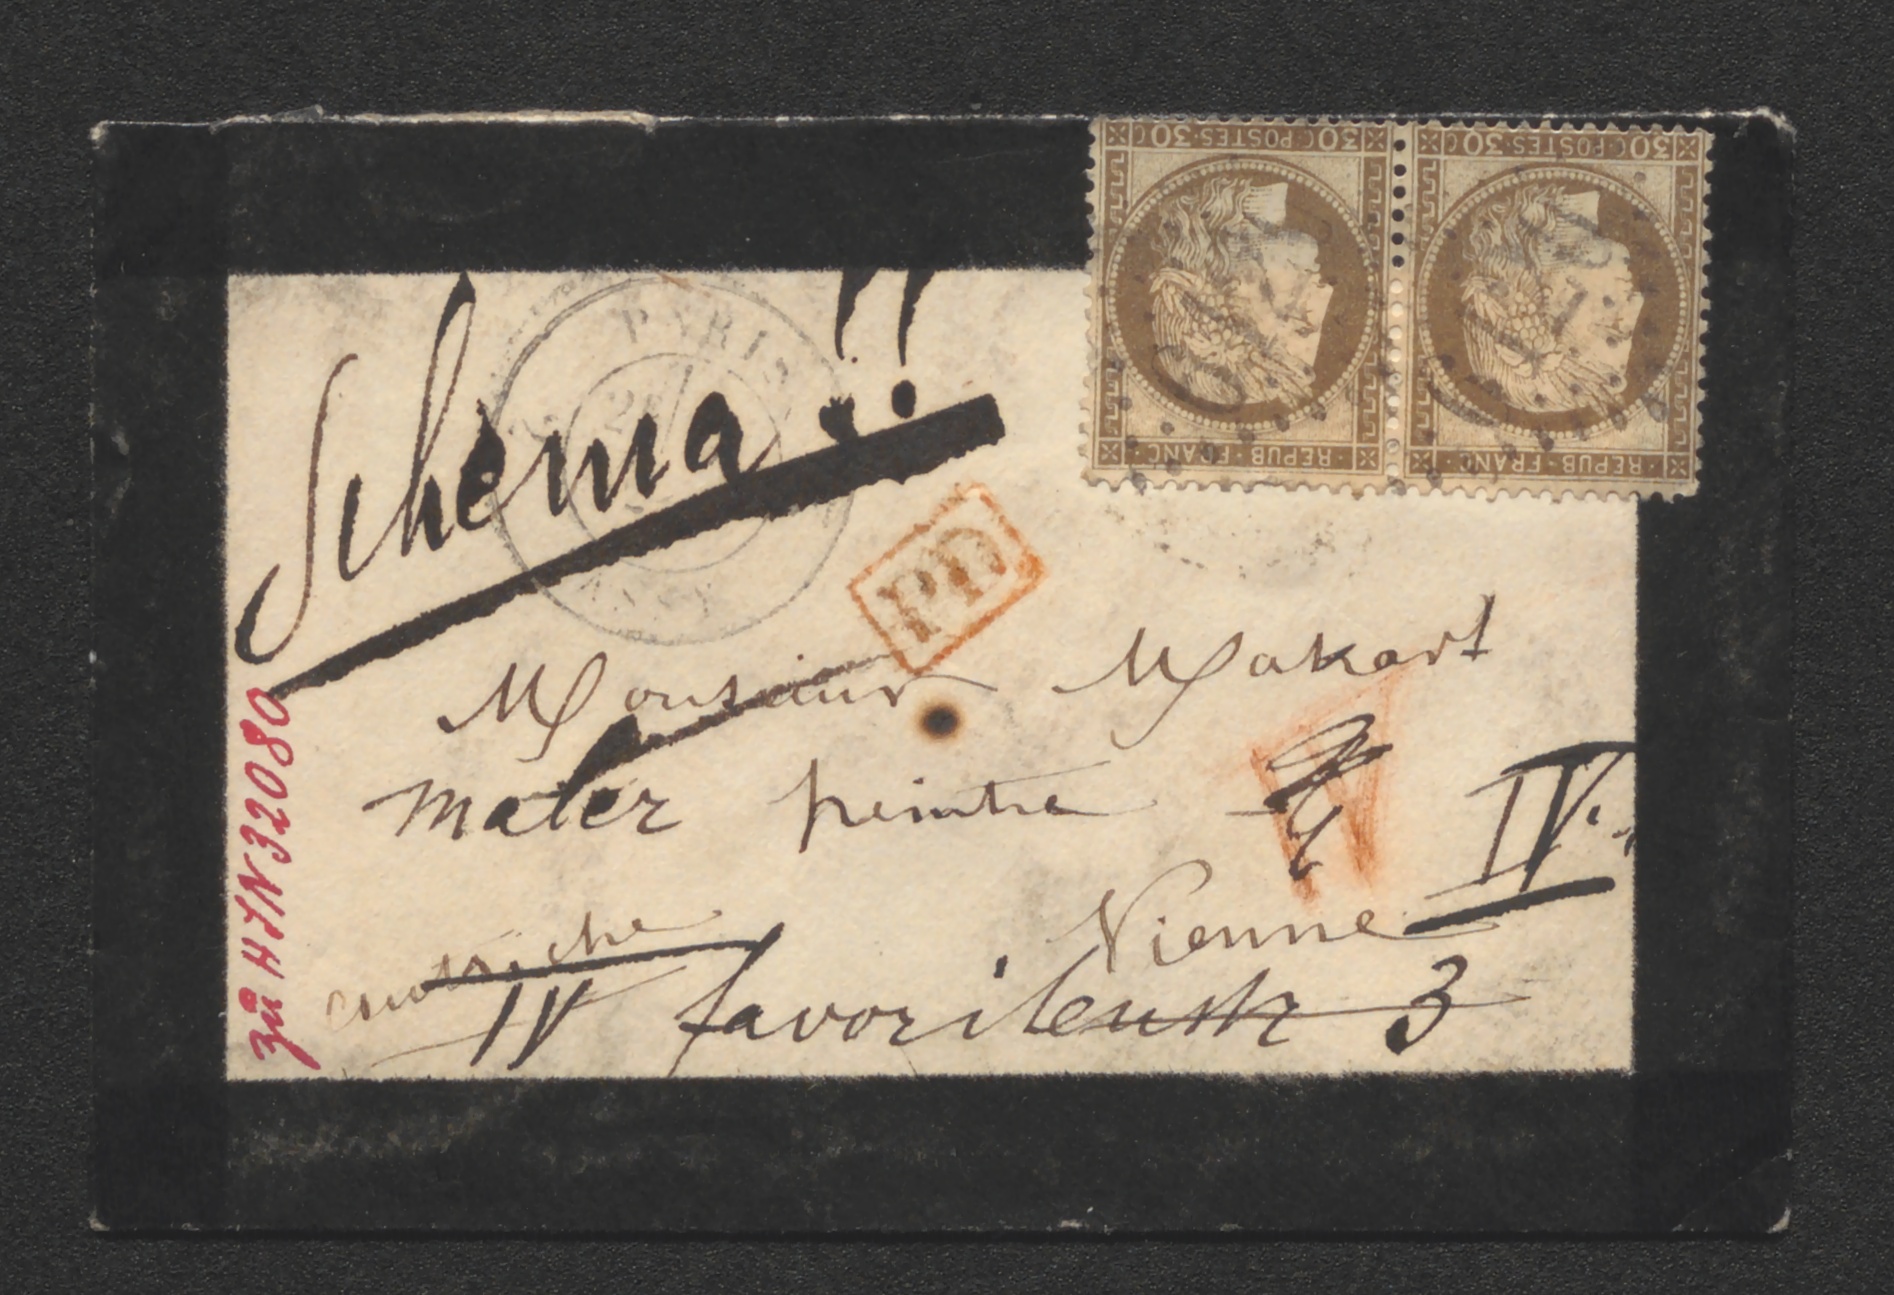 30 C POSTES 30 C
30 C POSTES 30 C
REPUB · FRANC
REPUB · FRANC
PARIS
Schema !!
PD
Monsieur Makart
Maler peintre
IV.
Vienne
autriche
IV favoritenstr 3
zu H.I.N 32080